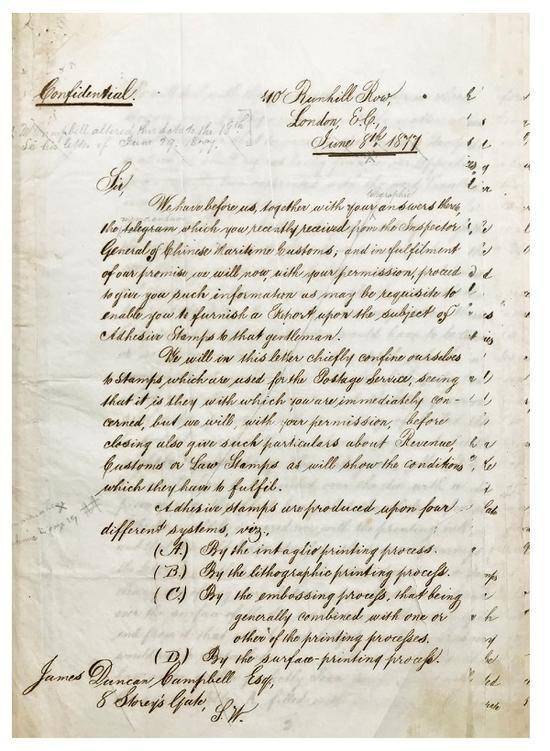 Confidential.
110 Bunhill Row,
London, E.C.,
June 8th 1877
Campbell altered this date to the 18th
letter of June 29. 1877.
Sir,
We have before us, together with your answers thereto,
telegraphic
the telegram which you recently received from the Inspector
General of Chinese Maritime Customs; and in fulfilment
of our promise, we will now with your permission, proceed
to give you such information as may be requisite to
enable you to furnish a Report upon the subject of
Adhesive Stamps to that gentleman.
We will in this letter chiefly confine ourselves
to Stamps, which are used for the Postage Service, seeing
that it is they with which you are immediately con-
cerned, but we will, with your permission, before
closing also give such particulars about Revenue,
Customs or Law Stamps as will show the conditions
which they have to fulfil.
Adhesive stamps are produced upon four
different systems, viz.,
(A.) By the intaglio printing process.
(B.) By the lithographic printing process.
(C.) By the embossing process, that being
generally combined with one or
other of the printing processes.
(D.) By the surface-printing process.
James Duncan Campbell Esq.,
8 Storey's Gate,
S.W.